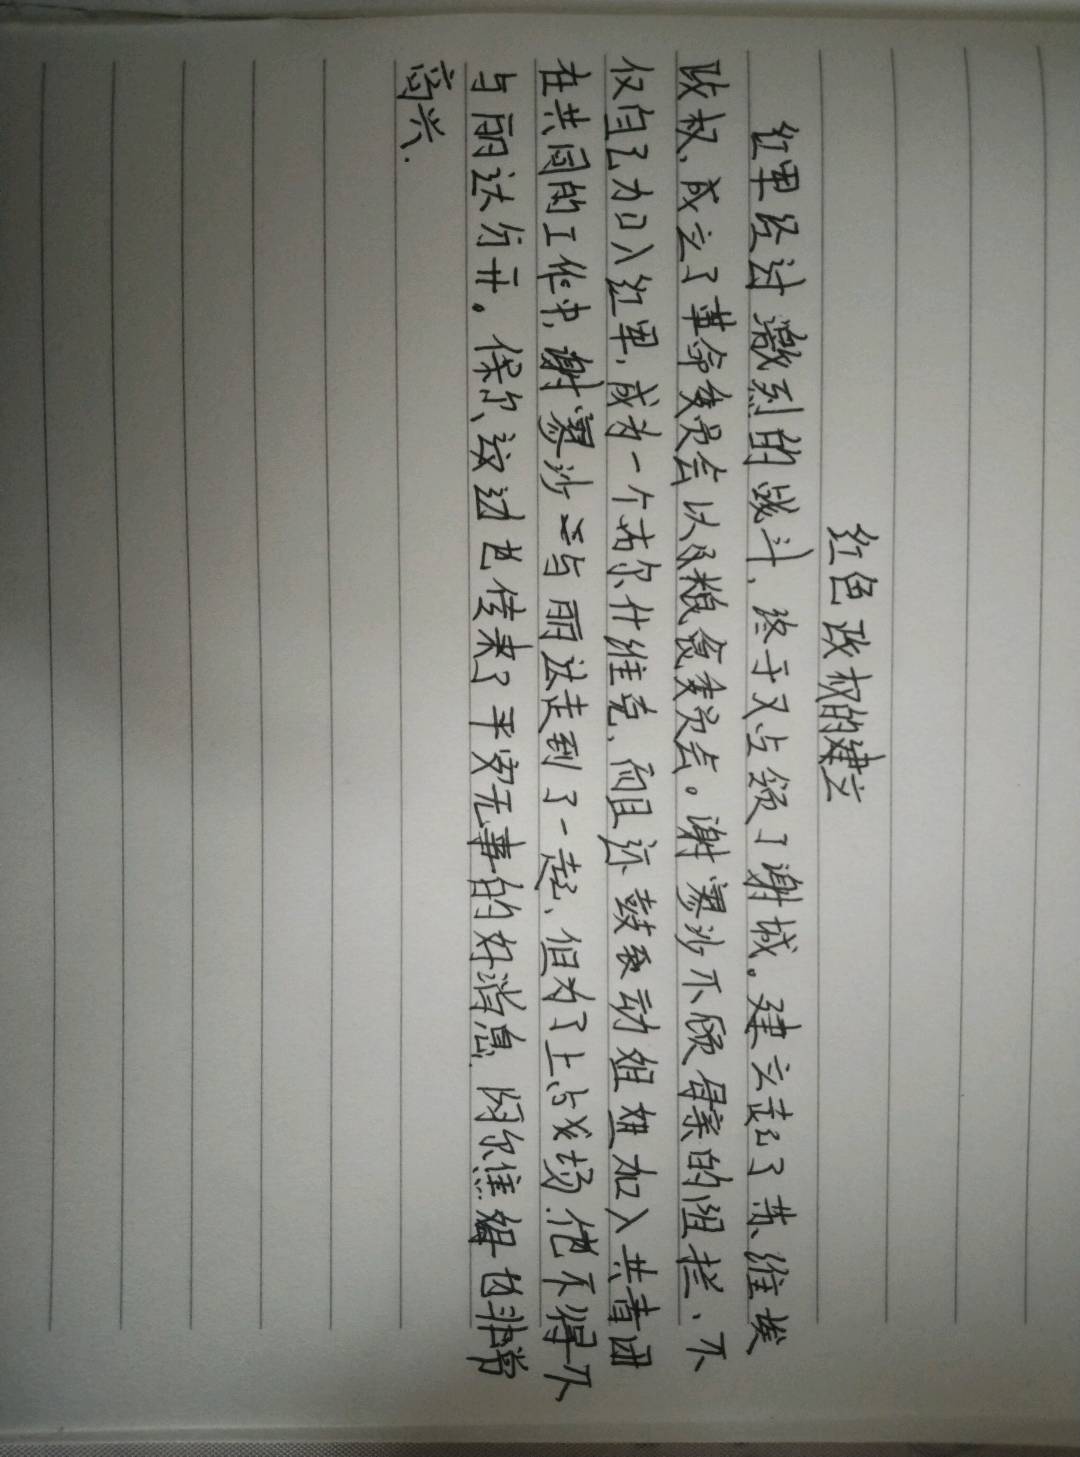 红色政权的建立
红军经过激烈的战斗，终于又占领了谢城。建立起了苏维埃
政权，成立了革命委员会以及粮食委员会。谢寥沙不顾母亲的阻拦、不
仅自己加入红军，成为一个布尔什维克，而且还鼓动姐姐加入共青团
在共同的工作中，谢寥沙与丽达走到了一起、但为了上战场.他不得不
与丽达分开。保尔这边也传来了平安无事的好消息.阿尔焦姆也非常
高兴.